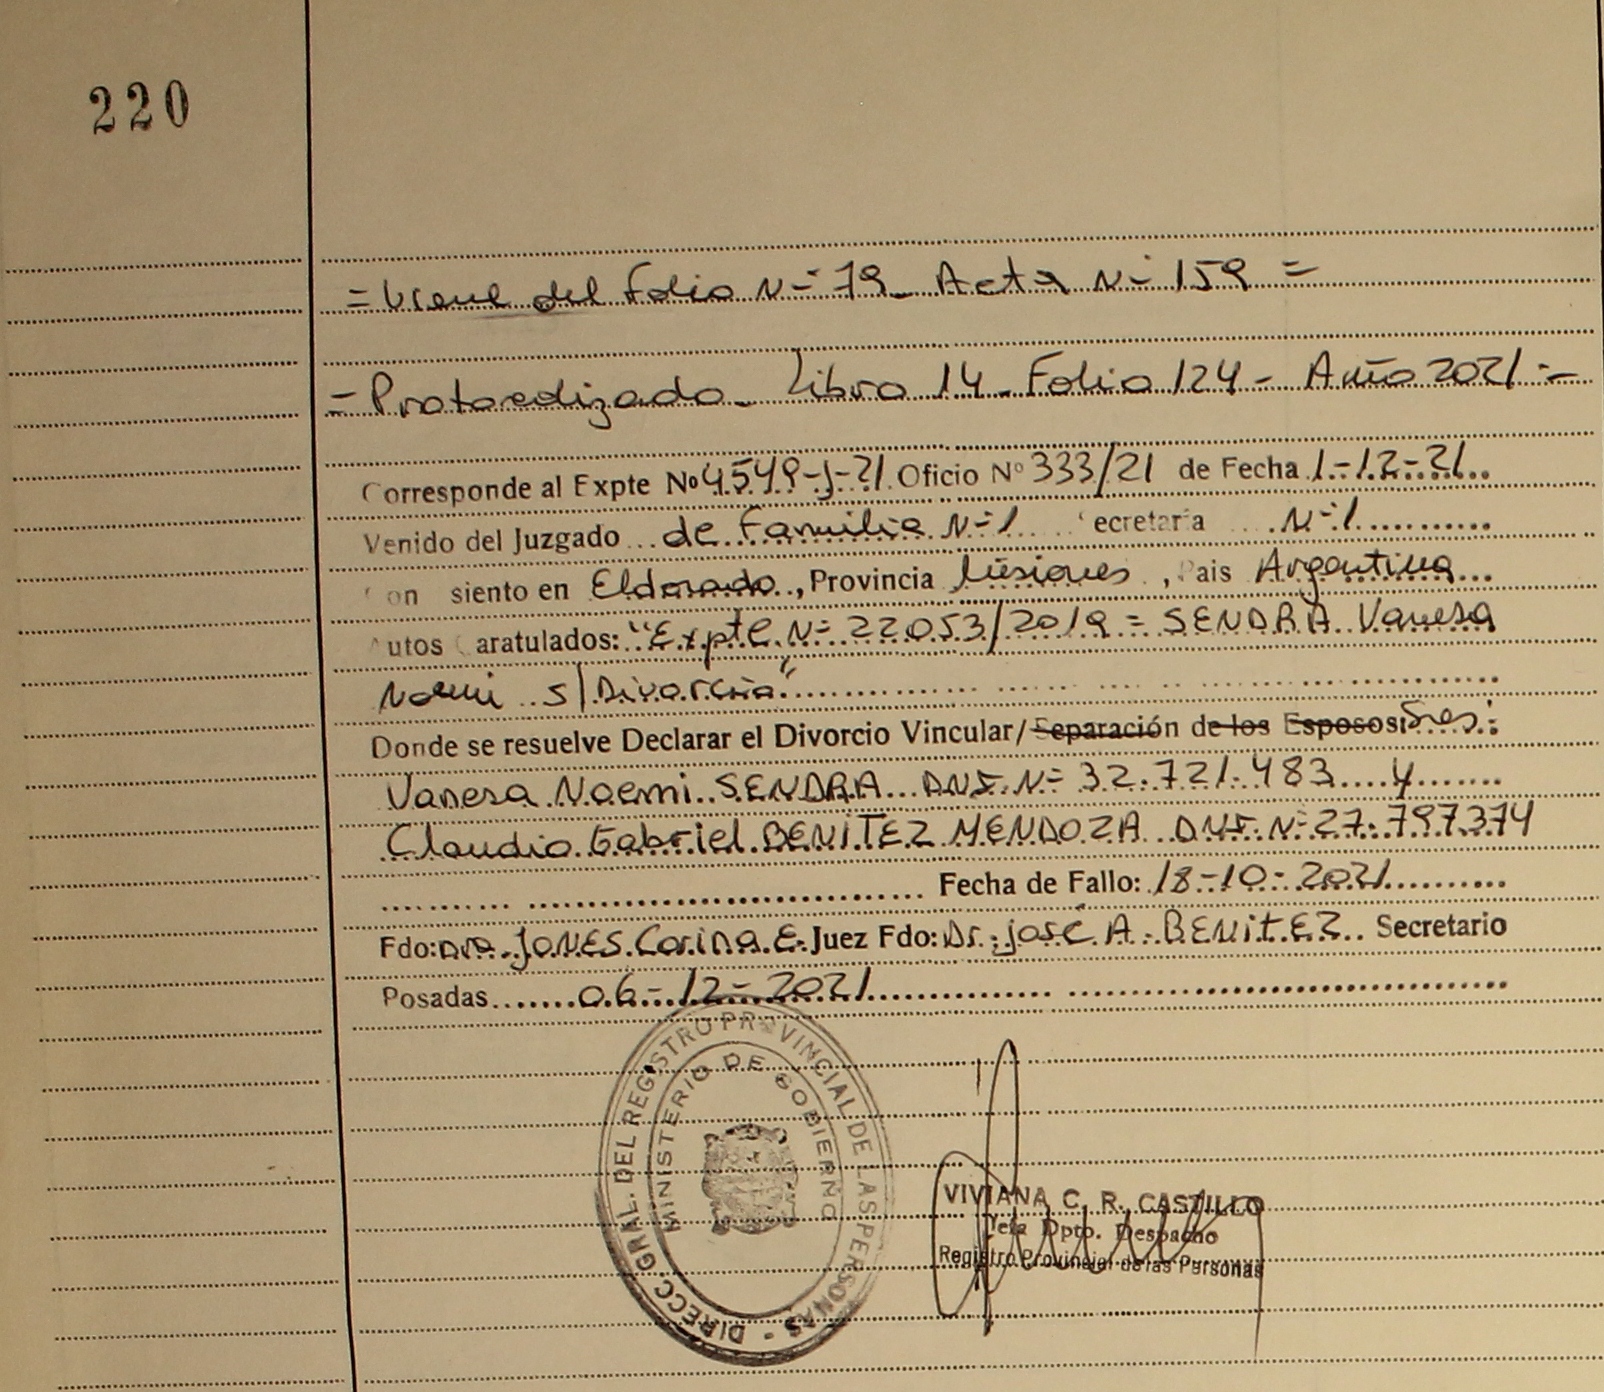 220
= Viene del Folio Nº 79_ Acta Nº 159 =
- Protocolizado_ Libro 14_ Folio 124 - Año 2021 -
Corresponde al Expte Nº 4549-J-21 Oficio Nº 333/21 de Fecha 1-12-21..
Venido del Juzgado ... de Familia Nº 1 ecretaria .... Nº 1..........
on siento en Eldorado.., Provincia Misiones , Pais Argentina...
utos aratulados: "Expte. Nº 22053/2019 = SENDRA Vanesa
Noemi .. s/ Divorcio"
Donde se resuelve Declarar el Divorcio Vincular/Separación de los Esposos: Sres:
Vanesa Noemi.. SENDRA... DNI. Nº 32.721.483.... y.......
Claudio Gabriel BENITEZ MENDOZA DNI. Nº 27.797.374
Fecha de Fallo: 18-10-2021..........
Fdo: Dra. JONES Corina E. Juez Fdo: Dr. José A. BENITEZ.. Secretario
Posadas.......06-12-2021
DIRECC. GRAL. DEL REGISTRO PROVINCIAL DE LAS PERSONAS -
MINISTERIO DE GOBIERNO
VIVIANA C. R. CASTILLO
Jefa Dpto. Despacho
Registro Provincial de las Personas